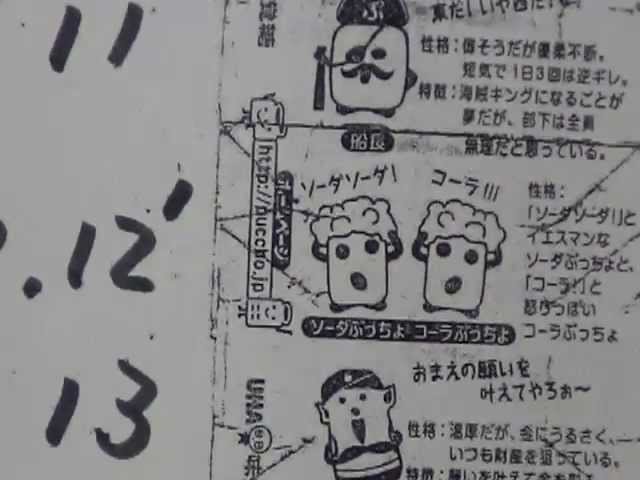 11
.12'
13
性格：偉そうだが優柔不断。
短気で1日3回は逆ギレ。
特徴：海賊キングになることが
夢だが、部下は全員
無理だと思っている。
船長
http://puccho.jp
ホームページ
ソーダソーダ!
コーラ!!!
性格：
「ソーダソーダ!」と
イエスマンな
ソーダぷっちょと、
「コーラ!!」と
怒りっぽい
コーラぷっちょ
ソーダぷっちょ コーラぷっちょ
おまえの願いを
叶えてやろぉ〜
UHA
性格：温厚だが、金にうるさく、
いつも財産を狙っている。
特徴：願いを叶えて